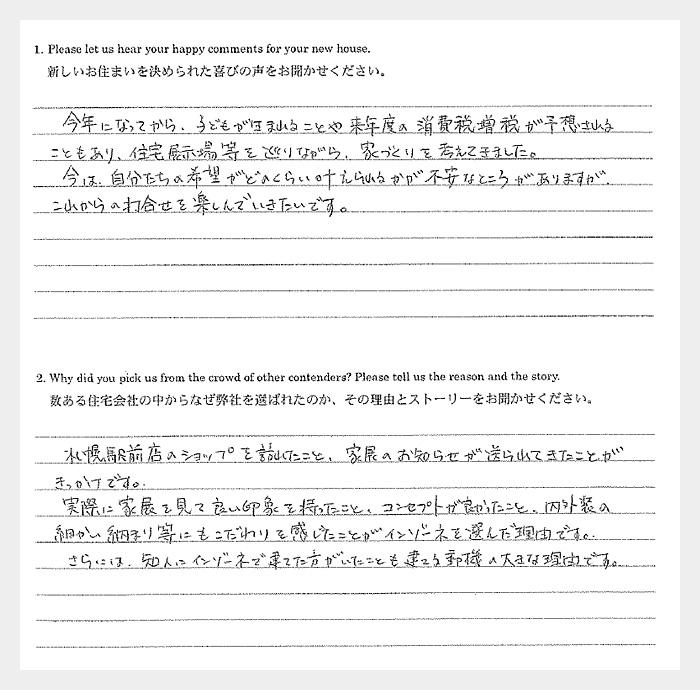 1. Please let us hear your happy comments for your new house.
新しいお住まいを決められた喜びの声をお聞かせください。
今年になってから、子どもが生まれることや来年度の消費税増税が予想される
こともあり、住宅展示場等を巡りながら、家づくりを考えてきました。
今は、自分たちの希望がどのくらい叶えられるかが不安なところがありますが、
これからの打合せを楽しんでいきたいです。
2. Why did you pick us from the crowd of other contenders? Please tell us the reason and the story.
数ある住宅会社の中からなぜ弊社を選ばれたのか、その理由とストーリーをお聞かせください。
札幌駅前店のショップを訪れたこと、家展のお知らせが送られてきたことが
きっかけです。
実際に家展を見て良い印象を持ったこと、コンセプトが良かったこと、内外装の
細かい納まり等にもこだわりを感じたことがインゾーネを選んだ理由です。
さらには、知人にインゾーネで建てた方がいたことも建てる動機の大きな理由です。